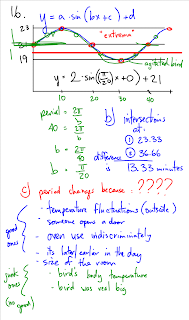 16. y = a·sin(bx+c)+d
23
"extrema"
21
19
10 20 30 40
y = 2·sin(π/20 x+0)+21
period = 2π/b
40 = 2π/b
b = 2π/40
b = π/20
b) intersections
at:
① 23.33
② 36.66
difference
is
13.33 minutes
c) period changes because: ????
good ones
- temperature fluctuations (outside)
- someone opens a door
- oven use indiscriminately
- its later/earlier in the day
- size of the room
junk ones
(no good)
- bird's body temperature
- bird was real big